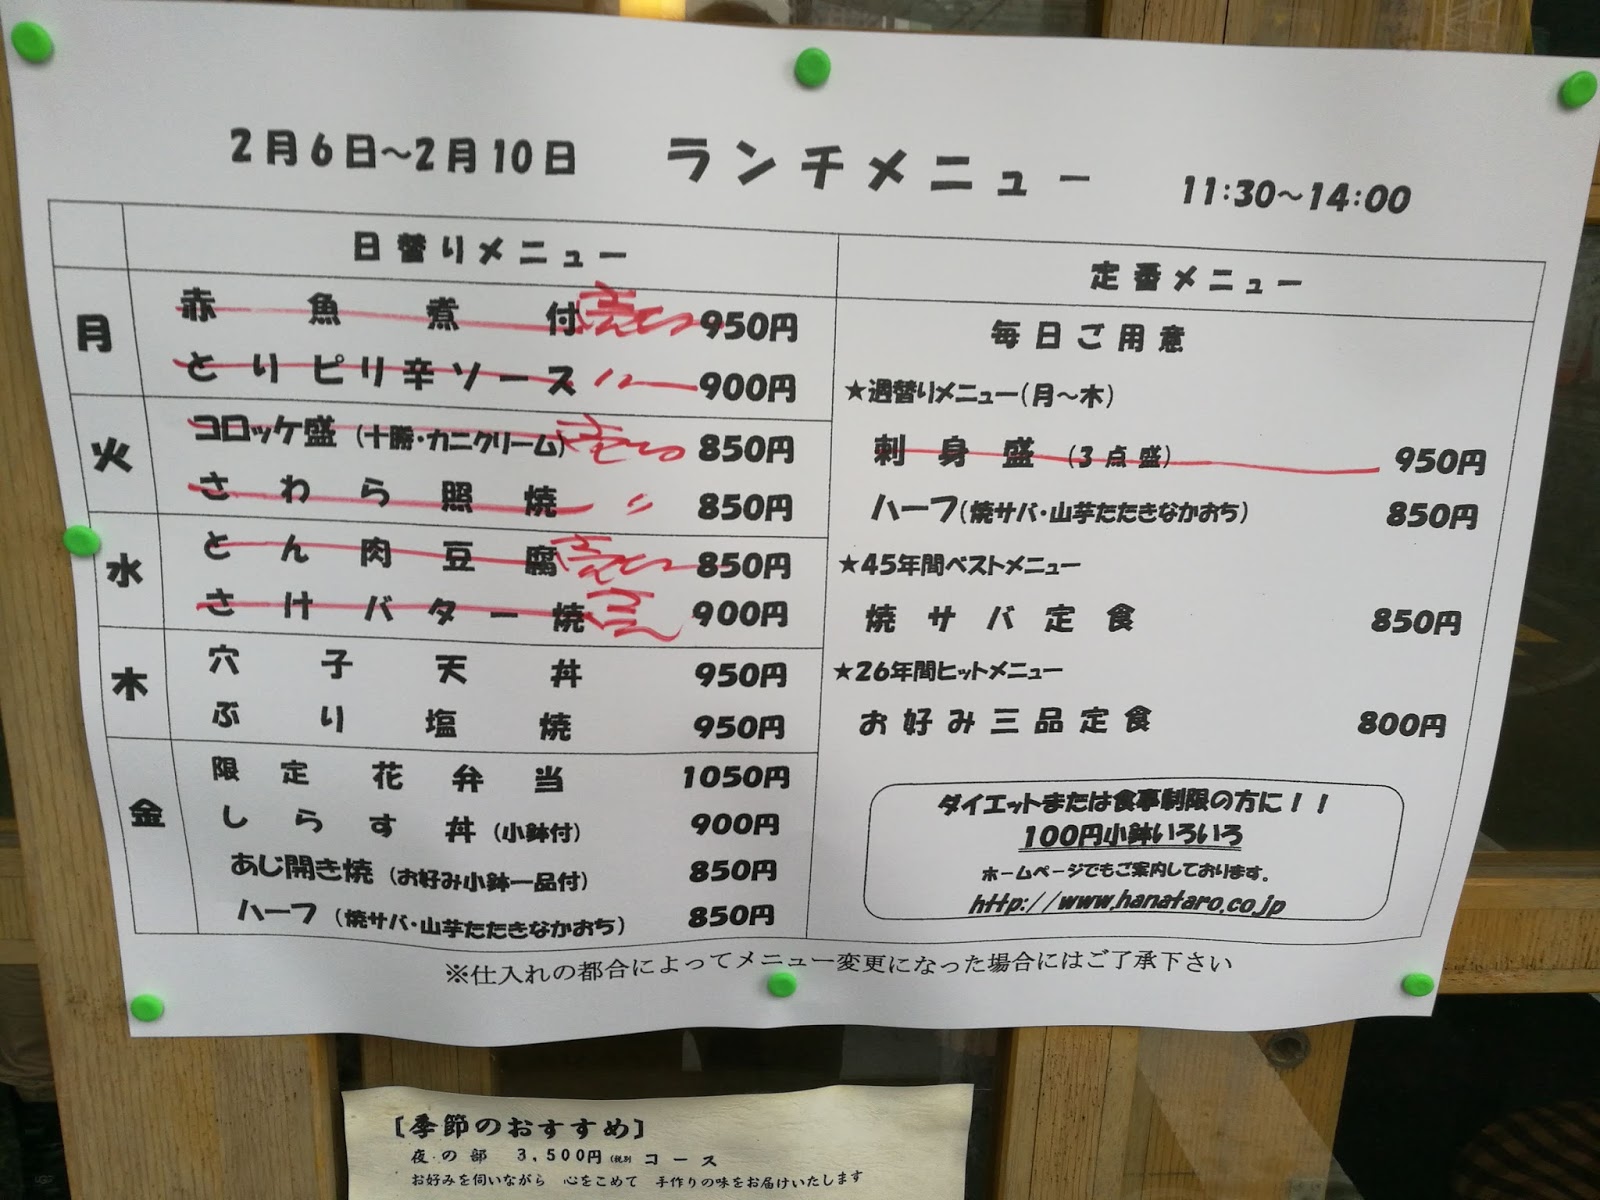 2月6日～2月10日 ランチメニュー 11:30～14:00
日替りメニュー
月
赤魚煮付 950円
とりピリ辛ソース 〃 900円
火
コロッケ盛（十勝・カニクリーム） 850円
さわら照焼 〃 850円
水
とん肉豆腐 850円
さけバター焼 900円
木
穴子天丼 950円
ぶり塩焼 950円
金
限定花弁当 1050円
しらす丼（小鉢付） 900円
あじ開き焼（お好み小鉢一品付） 850円
ハーフ（焼サバ・山芋たたきなかおち） 850円
定番メニュー
毎日ご用意
★週替りメニュー（月～木）
刺身盛（3点盛） 950円
ハーフ（焼サバ・山芋たたきなかおち） 850円
★45年間ベストメニュー
焼サバ定食 850円
★26年間ヒットメニュー
お好み三品定食 800円
ダイエットまたは食事制限の方に！！
100円小鉢いろいろ
ホームページでもご案内しております。
http://www.hanataro.co.jp
※仕入れの都合によってメニュー変更になった場合にはご了承下さい
［季節のおすすめ］
夜の部 3,500円（税別） コース
お好みを伺いながら 心をこめて 手作りの味をお届けいたします